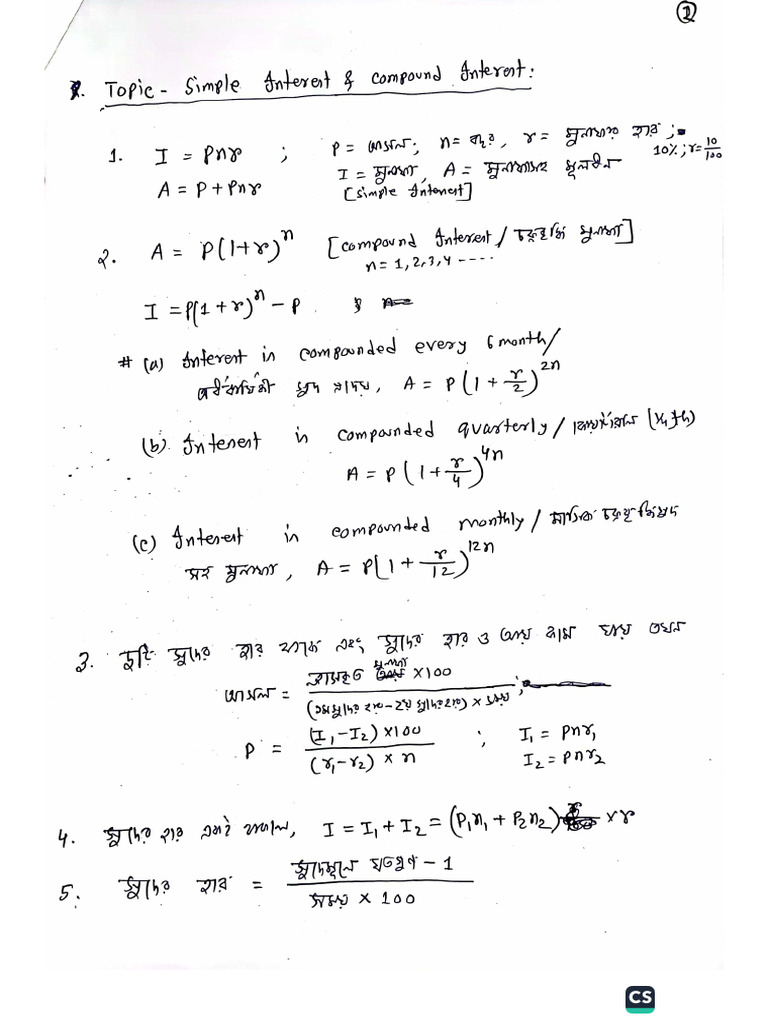 1
Topic - Simple Interest & Compound Interest:
1. I = Pnr ; P = আসল; n = বছর, r = মুনাফার হার ;
10%; r = 10/100
A = P + Pnr I = মুনাফা, A = মুনাফাসহ মূলধন
[Simple Interest]
2. A = P(1+r)^n [Compound Interest / চক্রবৃদ্ধি মুনাফা]
n = 1, 2, 3, 4 ----
I = P(1+r)^n - P
# (a) Interest in compounded every 6 month/
অর্ধবার্ষিকী সুদ A = P(1 + r/2)^2n
(b) Interest in compounded quarterly /
A = P(1 + r/4)^4n
(c) Interest in compounded monthly / মাসিক
সহ মুনাফা, A = P(1 + r/12)^12n
3. দুটি সুদের হার থাকে এবং সুদের হার ও আয় হ্রাস পায় তখন
আসল = হ্রাসকৃত মুনাফা × 100 / (১ম সুদের হার - ২য় সুদের হার) × সময় ;
P = (I₁-I₂) × 100 / (r₁-r₂) × n ; I₁ = Pnr₁
I₂ = Pnr₂
4. সুদের হার একই থাকলে, I = I₁ + I₂ = (P₁n₁ + P₂n₂) × r
5. সুদের হার = সুদেমূলে যতগুণ - 1 / সময় × 100
CS